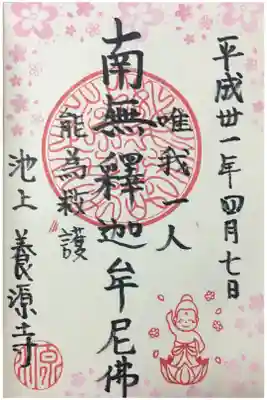 平成卅一年四月七日
唯我一人
南無釋迦牟尼佛
能為救護
池上 養源寺